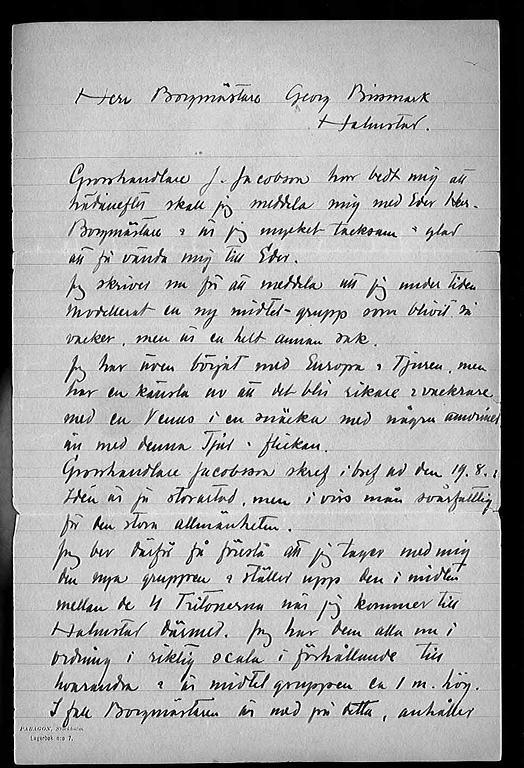 Herr Borgmästare Georg Bismark
Halmstad.
Grosshandlare J. Jacobson har bedt mig att
hädanefter skall jag meddela mig med Eder Herr
Borgmästare & är jag mycket tacksam & glad
att få vända mig till Eder.
Jag skrifver nu för att meddela att jag under tiden
modellerat en ny midtel-grupp som blivit så
vacker, men är en helt annan sak.
Jag har även börjat med Europa & Tjuren, men
har en känsla av att det blir rikare & vackrare
med en Venus i en snäcka med några
än med denna Tjur & flickan.
Grosshandlare Jacobsson skref i bref av den 19.8.:
Idén är ju storartad, men i viss mån svårfattlig
för den stora allmänheten.
Jag ber därför få föreslå att jag tager med mig
den nya gruppen & ställer upp den i midten
mellan de 4 Tritonerna när jag kommer till
Halmstad därmed. Jag har dem alla nu i
ordning i riktig scala i förhållande till
varandra & är midtelgruppen ca 1 m. hög.
I fall Borgmästaren är med på detta, anhåller
PARAGON, Stockholm
Lagerbok n:o 7.